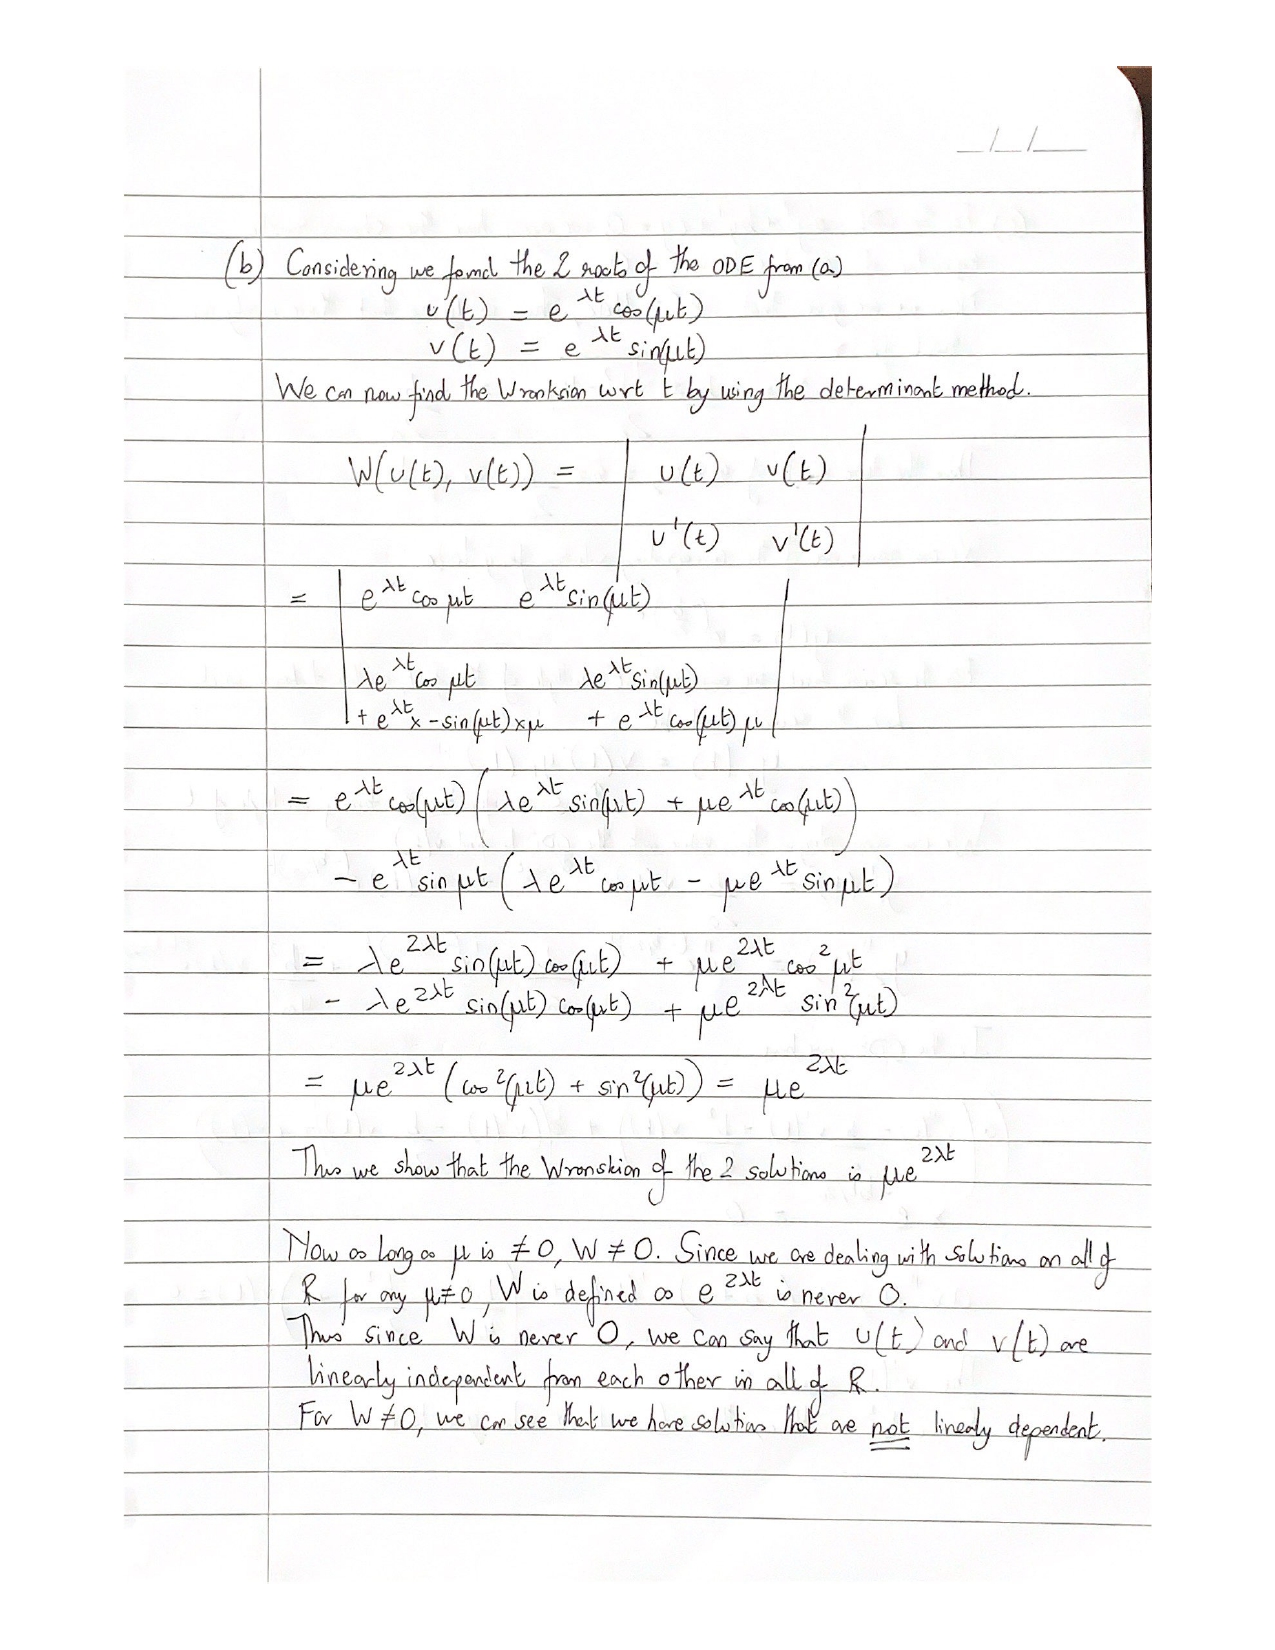 __/__/____
(b) Considering we found the 2 roots of the ODE from (a)
u(t) = e^{λt} cos(μt)
v(t) = e^{λt} sin(μt)
We can now find the Wronksian wrt t by using the determinant method.
W(u(t), v(t)) = | u(t) v(t) |
| u'(t) v'(t) |
= | e^{λt} cos μt e^{λt} sin(μt) |
| λe^{λt} cos μt λe^{λt} sin(μt) |
| + e^{λt} x - sin(μt) x μ + e^{λt} cos(μt) μ |
= e^{λt} cos(μt) (λe^{λt} sin(μt) + μe^{λt} cos(μt))
- e^{λt} sin μt (λe^{λt} cos μt - μe^{λt} sin μt)
= λe^{2λt} sin(μt) cos(μt) + μe^{2λt} cos² μt
- λe^{2λt} sin(μt) cos(μt) + μe^{2λt} sin²(μt)
= μe^{2λt} (cos²(μt) + sin²(μt)) = μe^{2λt}
Thus we show that the Wronskian of the 2 solutions is μe^{2λt}
Now as long as μ is ≠ 0, W ≠ 0. Since we are dealing with solutions on all of
R for any μ≠0, W is defined as e^{2λt} is never 0.
Thus since W is never 0, we can say that u(t) and v(t) are
linearly independent from each other in all of R.
For W ≠ 0, we can see that we have solutions that are not linearly dependent.